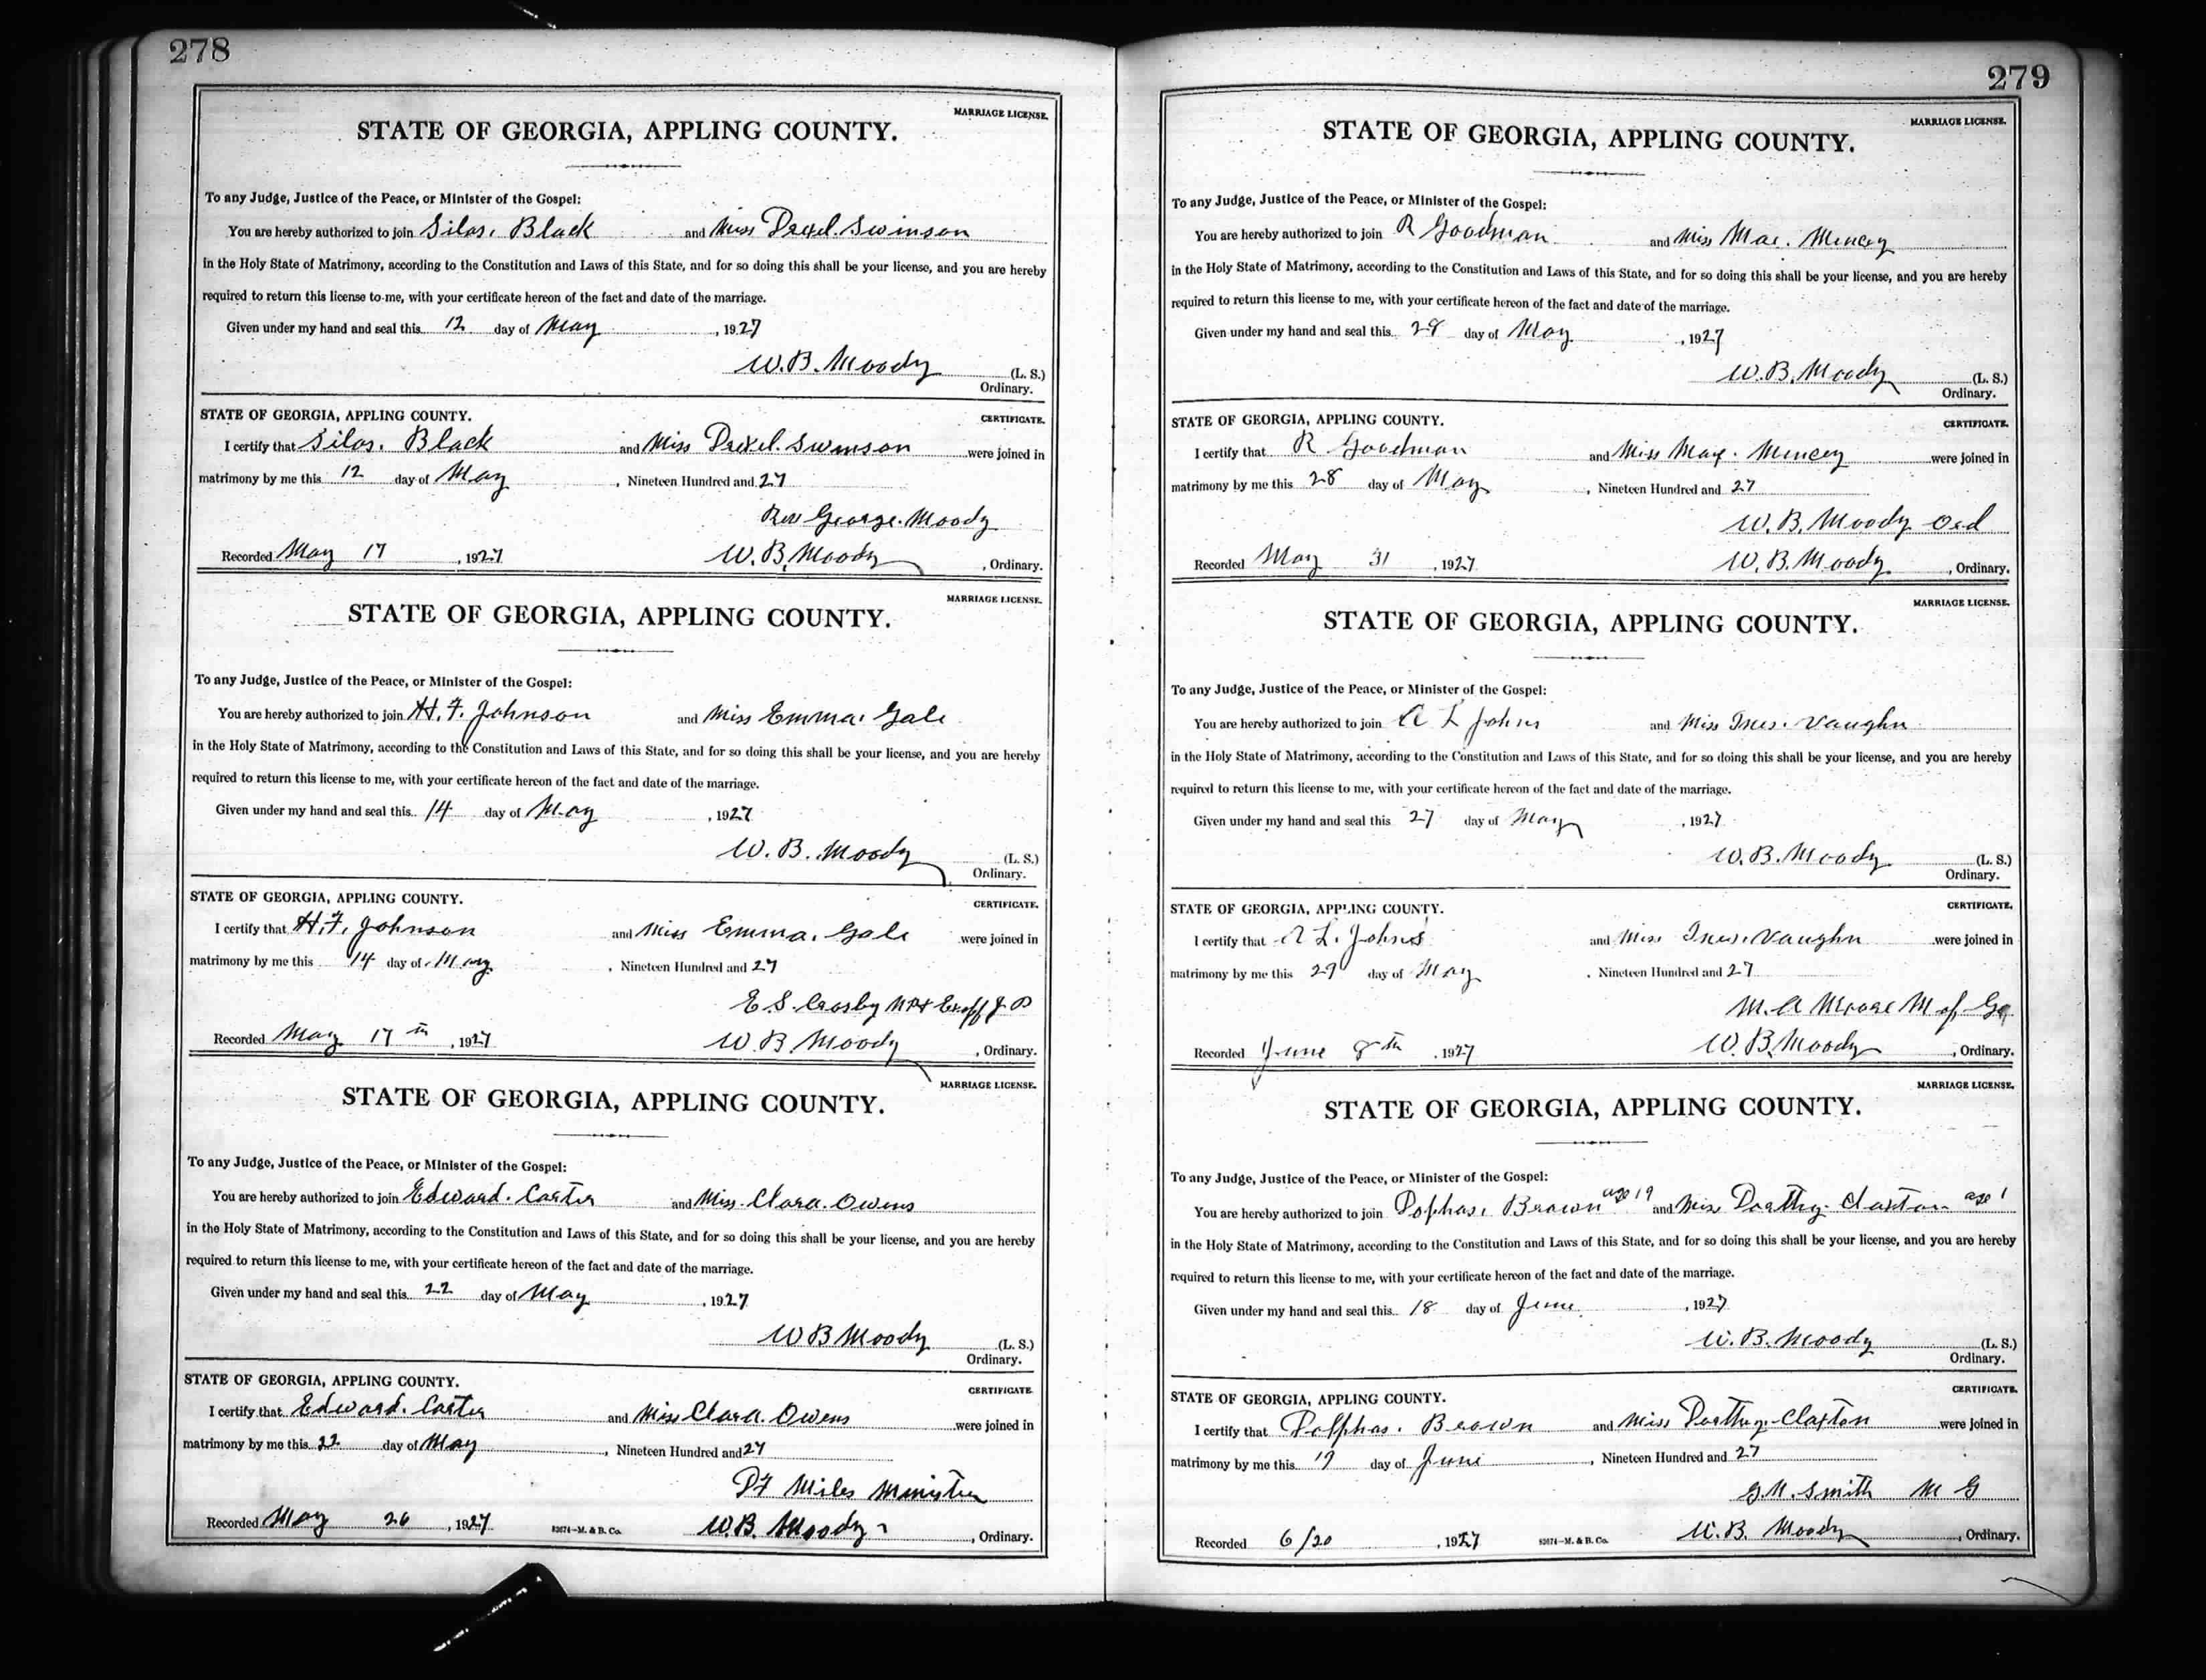 278
MARRIAGE LICENSE.
STATE OF GEORGIA, APPLING COUNTY.
To any Judge, Justice of the Peace, or Minister of the Gospel:
You are hereby authorized to join Silas. Black and Miss Drexel. Swinson
in the Holy State of Matrimony, according to the Constitution and Laws of this State, and for so doing this shall be your license, and you are hereby
required to return this license to me, with your certificate hereon of the fact and date of the marriage.
Given under my hand and seal this 12 day of May, 1927
W.B. Moody (L. S.)
Ordinary.
STATE OF GEORGIA, APPLING COUNTY.
CERTIFICATE.
I certify that Silas. Black and Miss Drexel. Swinson were joined in
matrimony by me this 12 day of May, Nineteen Hundred and 27
Rev George. Moody
Recorded May 17, 1927 W.B. Moody, Ordinary.
MARRIAGE LICENSE.
STATE OF GEORGIA, APPLING COUNTY.
To any Judge, Justice of the Peace, or Minister of the Gospel:
You are hereby authorized to join H. F. Johnson and Miss Emma. Gale
in the Holy State of Matrimony, according to the Constitution and Laws of this State, and for so doing this shall be your license, and you are hereby
required to return this license to me, with your certificate hereon of the fact and date of the marriage.
Given under my hand and seal this 14 day of May, 1927
W. B. Moody (L. S.)
Ordinary.
STATE OF GEORGIA, APPLING COUNTY.
CERTIFICATE.
I certify that H. F. Johnson and Miss Emma. Gale were joined in
matrimony by me this 14 day of May, Nineteen Hundred and 27
E. S. Crosby NP & Exoff J P
Recorded May 17 th, 1927 W. B. Moody, Ordinary.
MARRIAGE LICENSE.
STATE OF GEORGIA, APPLING COUNTY.
To any Judge, Justice of the Peace, or Minister of the Gospel:
You are hereby authorized to join Edward. Carter and Miss. Clara. Owens
in the Holy State of Matrimony, according to the Constitution and Laws of this State, and for so doing this shall be your license, and you are hereby
required to return this license to me, with your certificate hereon of the fact and date of the marriage.
Given under my hand and seal this 22 day of May, 1927
W B Moody (L. S.)
Ordinary.
STATE OF GEORGIA, APPLING COUNTY.
CERTIFICATE.
I certify that Edward. Carter and Miss Clara. Owens were joined in
matrimony by me this 22 day of May, Nineteen Hundred and 27
Miles Minister
Recorded May 26, 1927 83674—M. & B. Co. W.B. Moody, Ordinary.
279
MARRIAGE LICENSE.
STATE OF GEORGIA, APPLING COUNTY.
To any Judge, Justice of the Peace, or Minister of the Gospel:
You are hereby authorized to join R Goodman and Miss Mae. Mincey
in the Holy State of Matrimony, according to the Constitution and Laws of this State, and for so doing this shall be your license, and you are hereby
required to return this license to me, with your certificate hereon of the fact and date of the marriage.
Given under my hand and seal this 28 day of May, 1927
W. B. Moody (L. S.)
Ordinary.
STATE OF GEORGIA, APPLING COUNTY.
CERTIFICATE.
I certify that R Goodman and Miss Mae. Mincey were joined in
matrimony by me this 28 day of May, Nineteen Hundred and 27
W. B. Moody Ord
Recorded May 31, 1927 W. B. Moody, Ordinary.
MARRIAGE LICENSE.
STATE OF GEORGIA, APPLING COUNTY.
To any Judge, Justice of the Peace, or Minister of the Gospel:
You are hereby authorized to join A L Johns and Miss Ines. Vaughn
in the Holy State of Matrimony, according to the Constitution and Laws of this State, and for so doing this shall be your license, and you are hereby
required to return this license to me, with your certificate hereon of the fact and date of the marriage.
Given under my hand and seal this 27 day of May, 1927
W. B. Moody (L. S.)
Ordinary.
STATE OF GEORGIA, APPLING COUNTY.
CERTIFICATE.
I certify that A L. Johns and Miss Ines. Vaughn were joined in
matrimony by me this 29 day of May, Nineteen Hundred and 27
M. A Moore M of G
Recorded June 8 th, 1927 W. B. Moody, Ordinary.
MARRIAGE LICENSE.
STATE OF GEORGIA, APPLING COUNTY.
To any Judge, Justice of the Peace, or Minister of the Gospel:
You are hereby authorized to join Brown age 19 and Miss Dorthy. Claxton age 1
in the Holy State of Matrimony, according to the Constitution and Laws of this State, and for so doing this shall be your license, and you are hereby
required to return this license to me, with your certificate hereon of the fact and date of the marriage.
Given under my hand and seal this 18 day of June, 1927
W. B. Moody (L. S.)
Ordinary.
STATE OF GEORGIA, APPLING COUNTY.
CERTIFICATE.
I certify that Brown and Miss Dorthy. Claxton were joined in
matrimony by me this 19 day of June, Nineteen Hundred and 27
G.N. Smith M G
Recorded 6/20, 1927 83674—M. & B. Co. W. B. Moody, Ordinary.